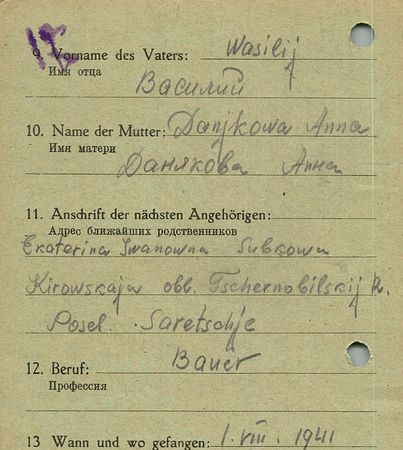 9. Vorname des Vaters: Wasilij
Имя отца
Василий
10. Name der Mutter: Danjkowa Anna
Имя матери
Данякова Анна
11. Anschrift der nächsten Angehörigen:
Адрес ближайших родственников
Ekaterina Iwanowna Subkowa
Kirowskaja obl. Tschernobilskij R.
Posel. Saretschje
12. Beruf: Bauer
Профессия
13 Wann und wo gefangen: 1. VIII. 1941